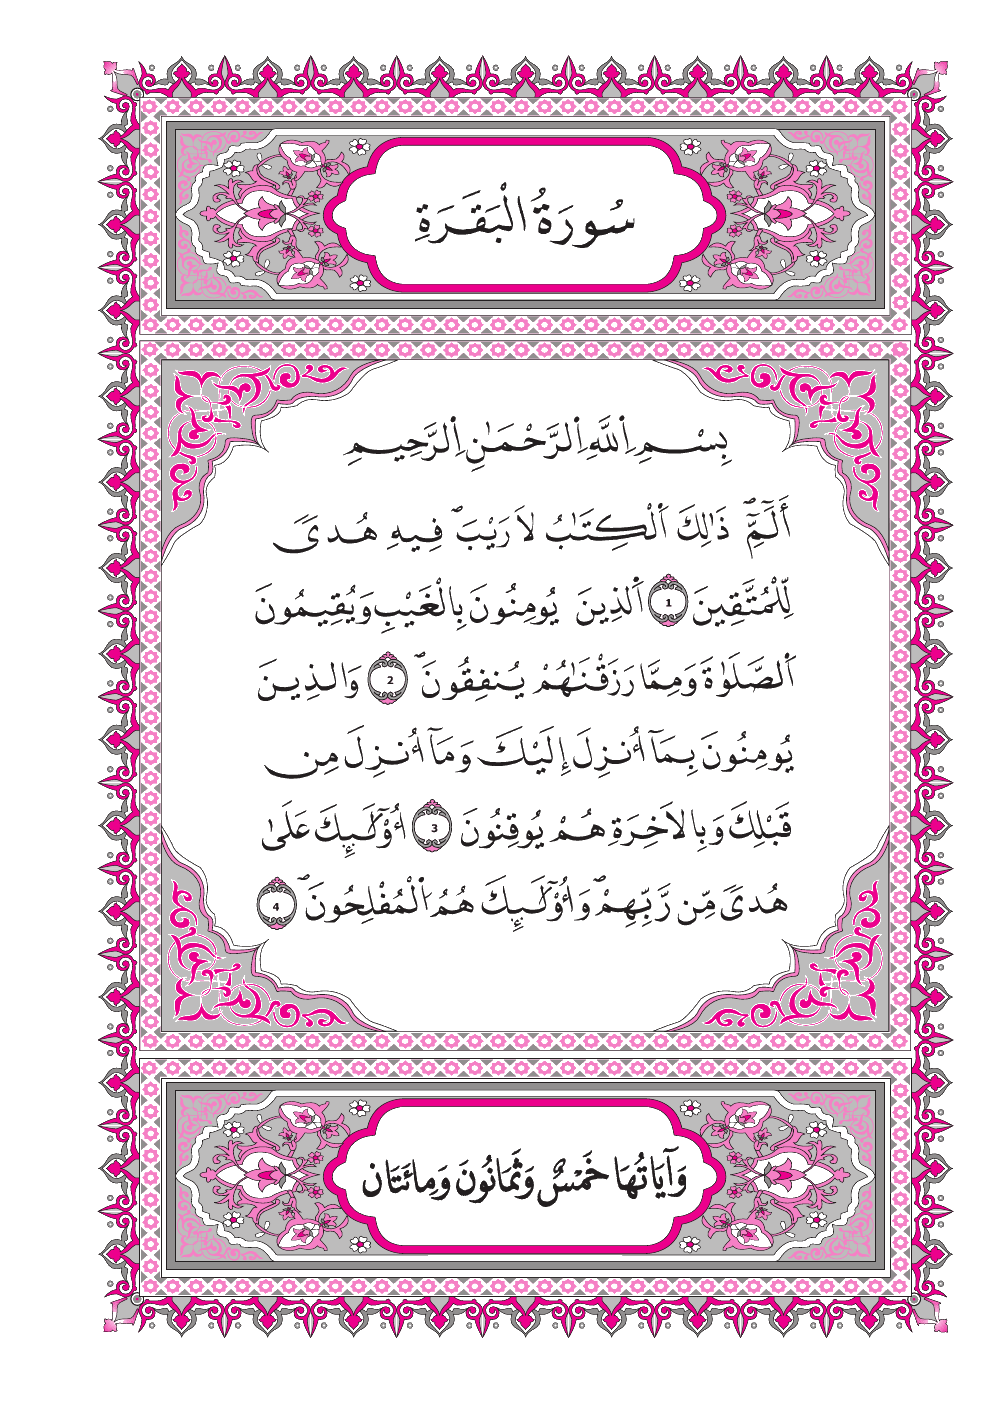 سُورَةُ الْبَقَرَةِ
بِسْمِ اِ۬للَّهِ اِ۬لرَّحْمَٰنِ اِ۬لرَّحِيمِ
أَلَٓمِّٓۖ ذَٰلِكَ اَ۬لْكِتَٰبُ لَا رَيْبَۖ فِيهِ هُدىٗ
لِّلْمُتَّقِينَ 1 اَ۬لذِينَ يُومِنُونَ بِالْغَيْبِ وَيُقِيمُونَ
اَ۬لصَّلَوٰةَ وَمِمَّا رَزَقْنَٰهُمْ يُنفِقُونَۖ 2 وَالذِينَ
يُومِنُونَ بِمَآ أُنزِلَ إِلَيْكَ وَمَآ أُنزِلَ مِن
قَبْلِكَ وَبِالَاخِرَةِ هُمْ يُوقِنُونَ 3 أُوْلَٰٓئِكَ عَلَىٰ
هُدىٗ مِّن رَّبِّهِمْۖ وَأُوْلَٰٓئِكَ هُمُ اُ۬لْمُفْلِحُونَۖ 4
وَآيَاتُهَا خَمْسٌ وَثَمَانُونَ وَمِائَتَان